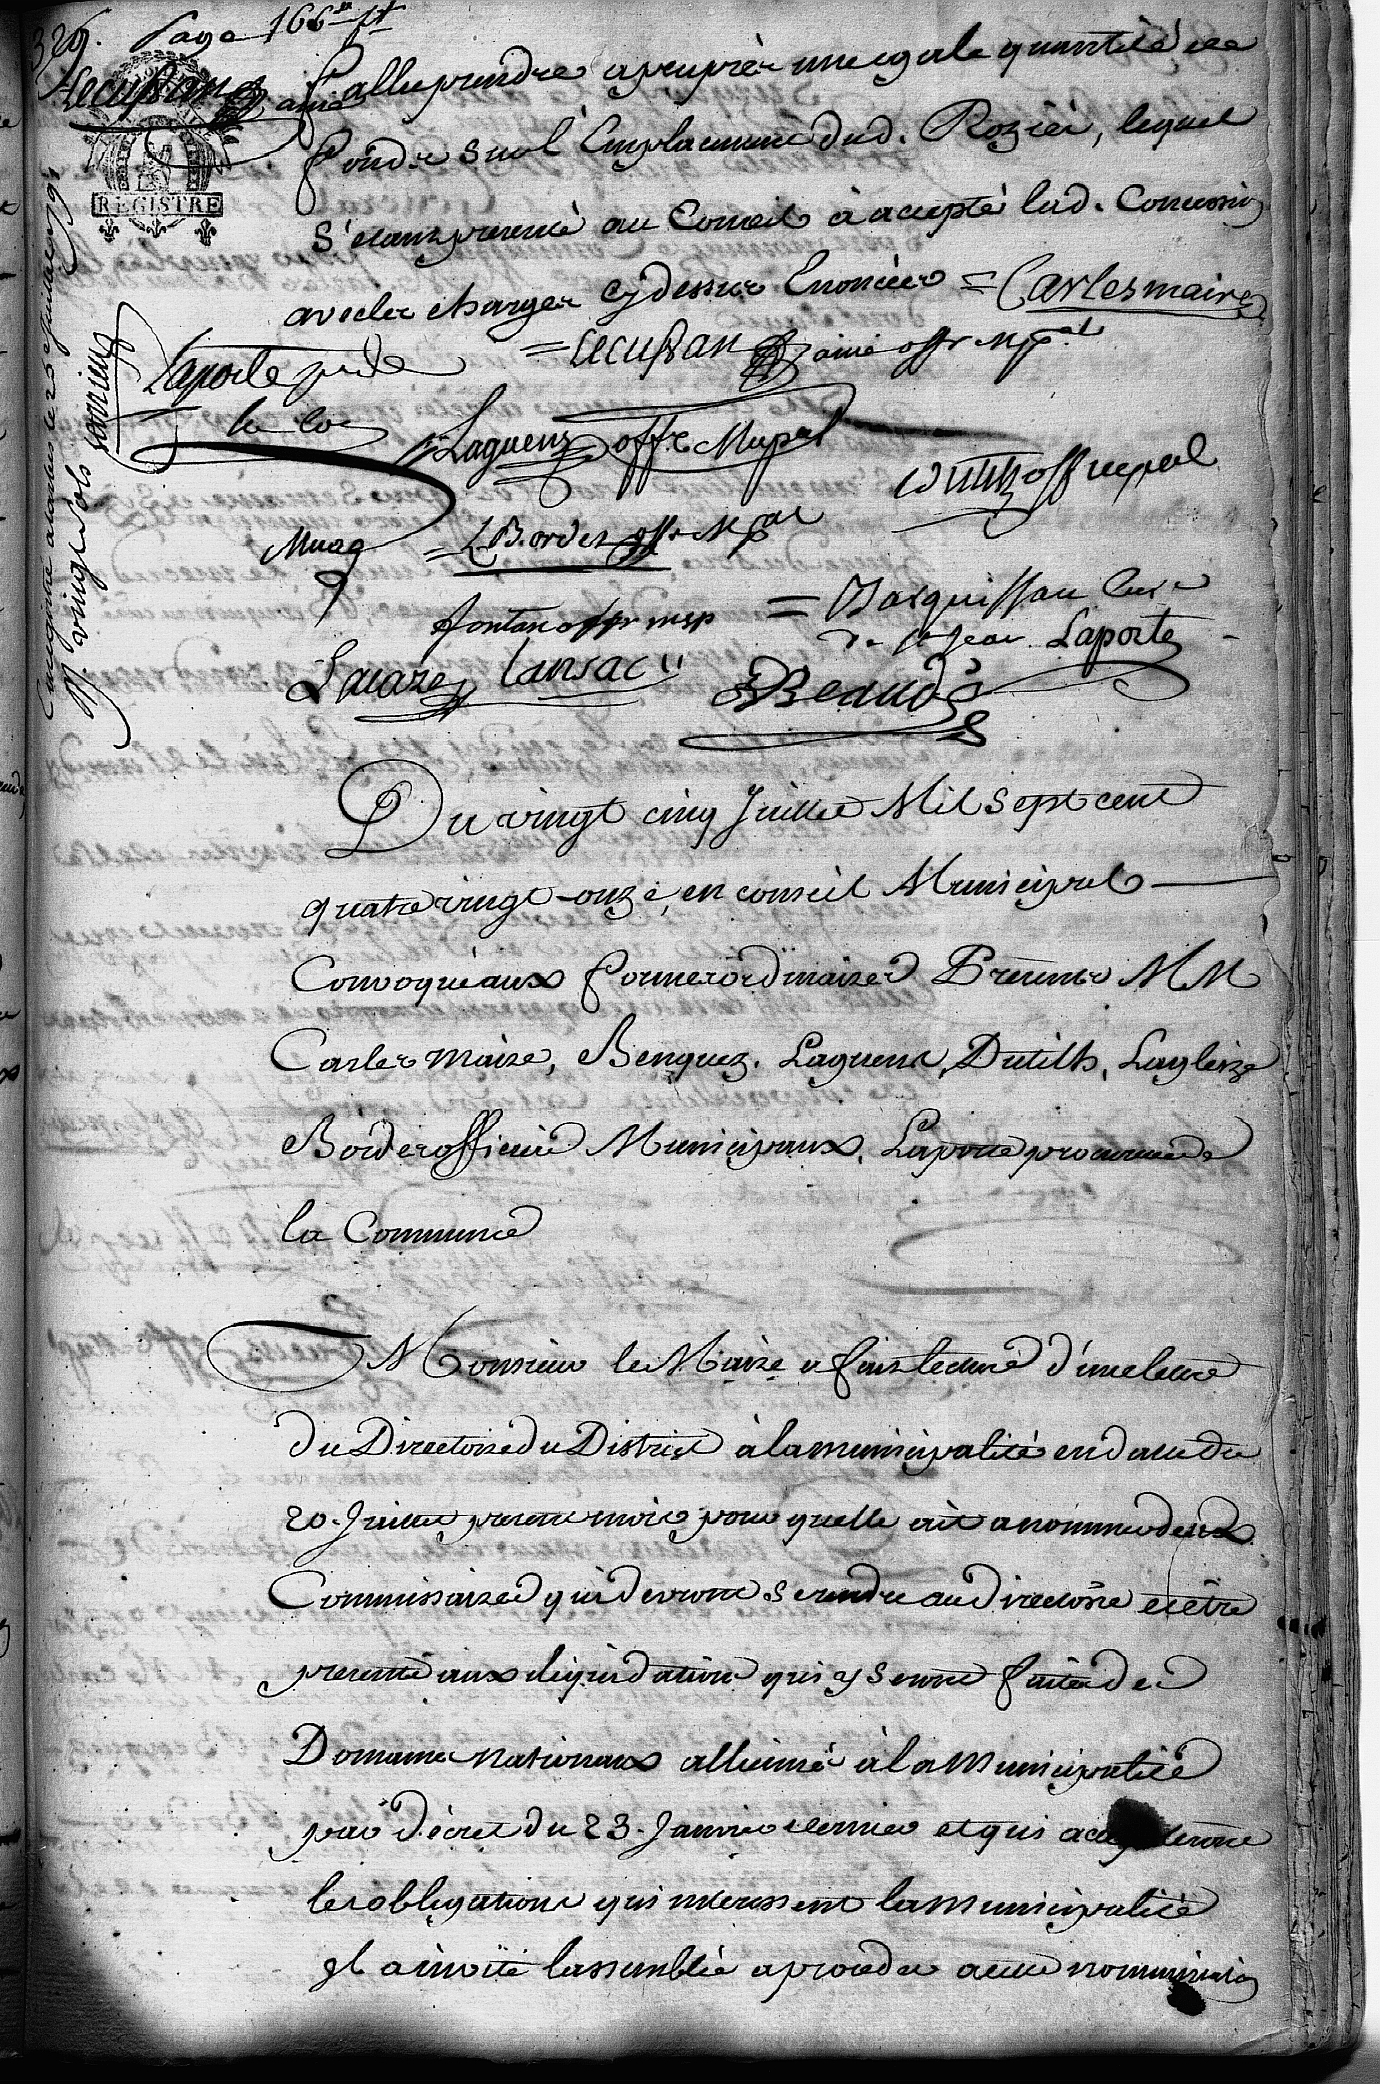 329. Page 166
Lecussan ainé
REGISTRE
alle prendre a peu prés une egale quantité de
fonds sur l'Emplacement dud. Rozier, lequel
S'etant presenté au Conseil à accepté lad. Concession
avec les charges cydessus Enoncées = Carles maire
Laporte pr de = Lecussan ainé offr. mpal
la Co
Laguens offr. Mupal
Dutilh off mupal
= Bordes offr Mpal
fontan offr mup = Barquissau Curé
de St Jean Laporte
Lacaze Tarsac
Beaud
Du vingt cinq Juillet Mil Sept cent
quatre vingt-onze, en conseil Municipal
Convoqué aux formes ordinaires Présents MM
Carles maire, Benquez, Laguens, Dutilh, Lagleize
Bordes officiers Municipaux, Laporte procureur de
la Commune
Monsieur le Maire a fait lecture d'une lettre
du Directoire du District à la municipalité en date du
20. Juillet present mois pour quelle ait a nommer deux
Commissaires qui devront se rendre au directoire et être
presents aux liquidations qui y seront faites des
Domaines nationaux alliennés à la Municipalité
par décret du 23. Janvier dernier et qui
les obligations qui interessent la Municipalité
Il a invité lassemblée a proceder a cette nomination
Enregistré
vingt sols